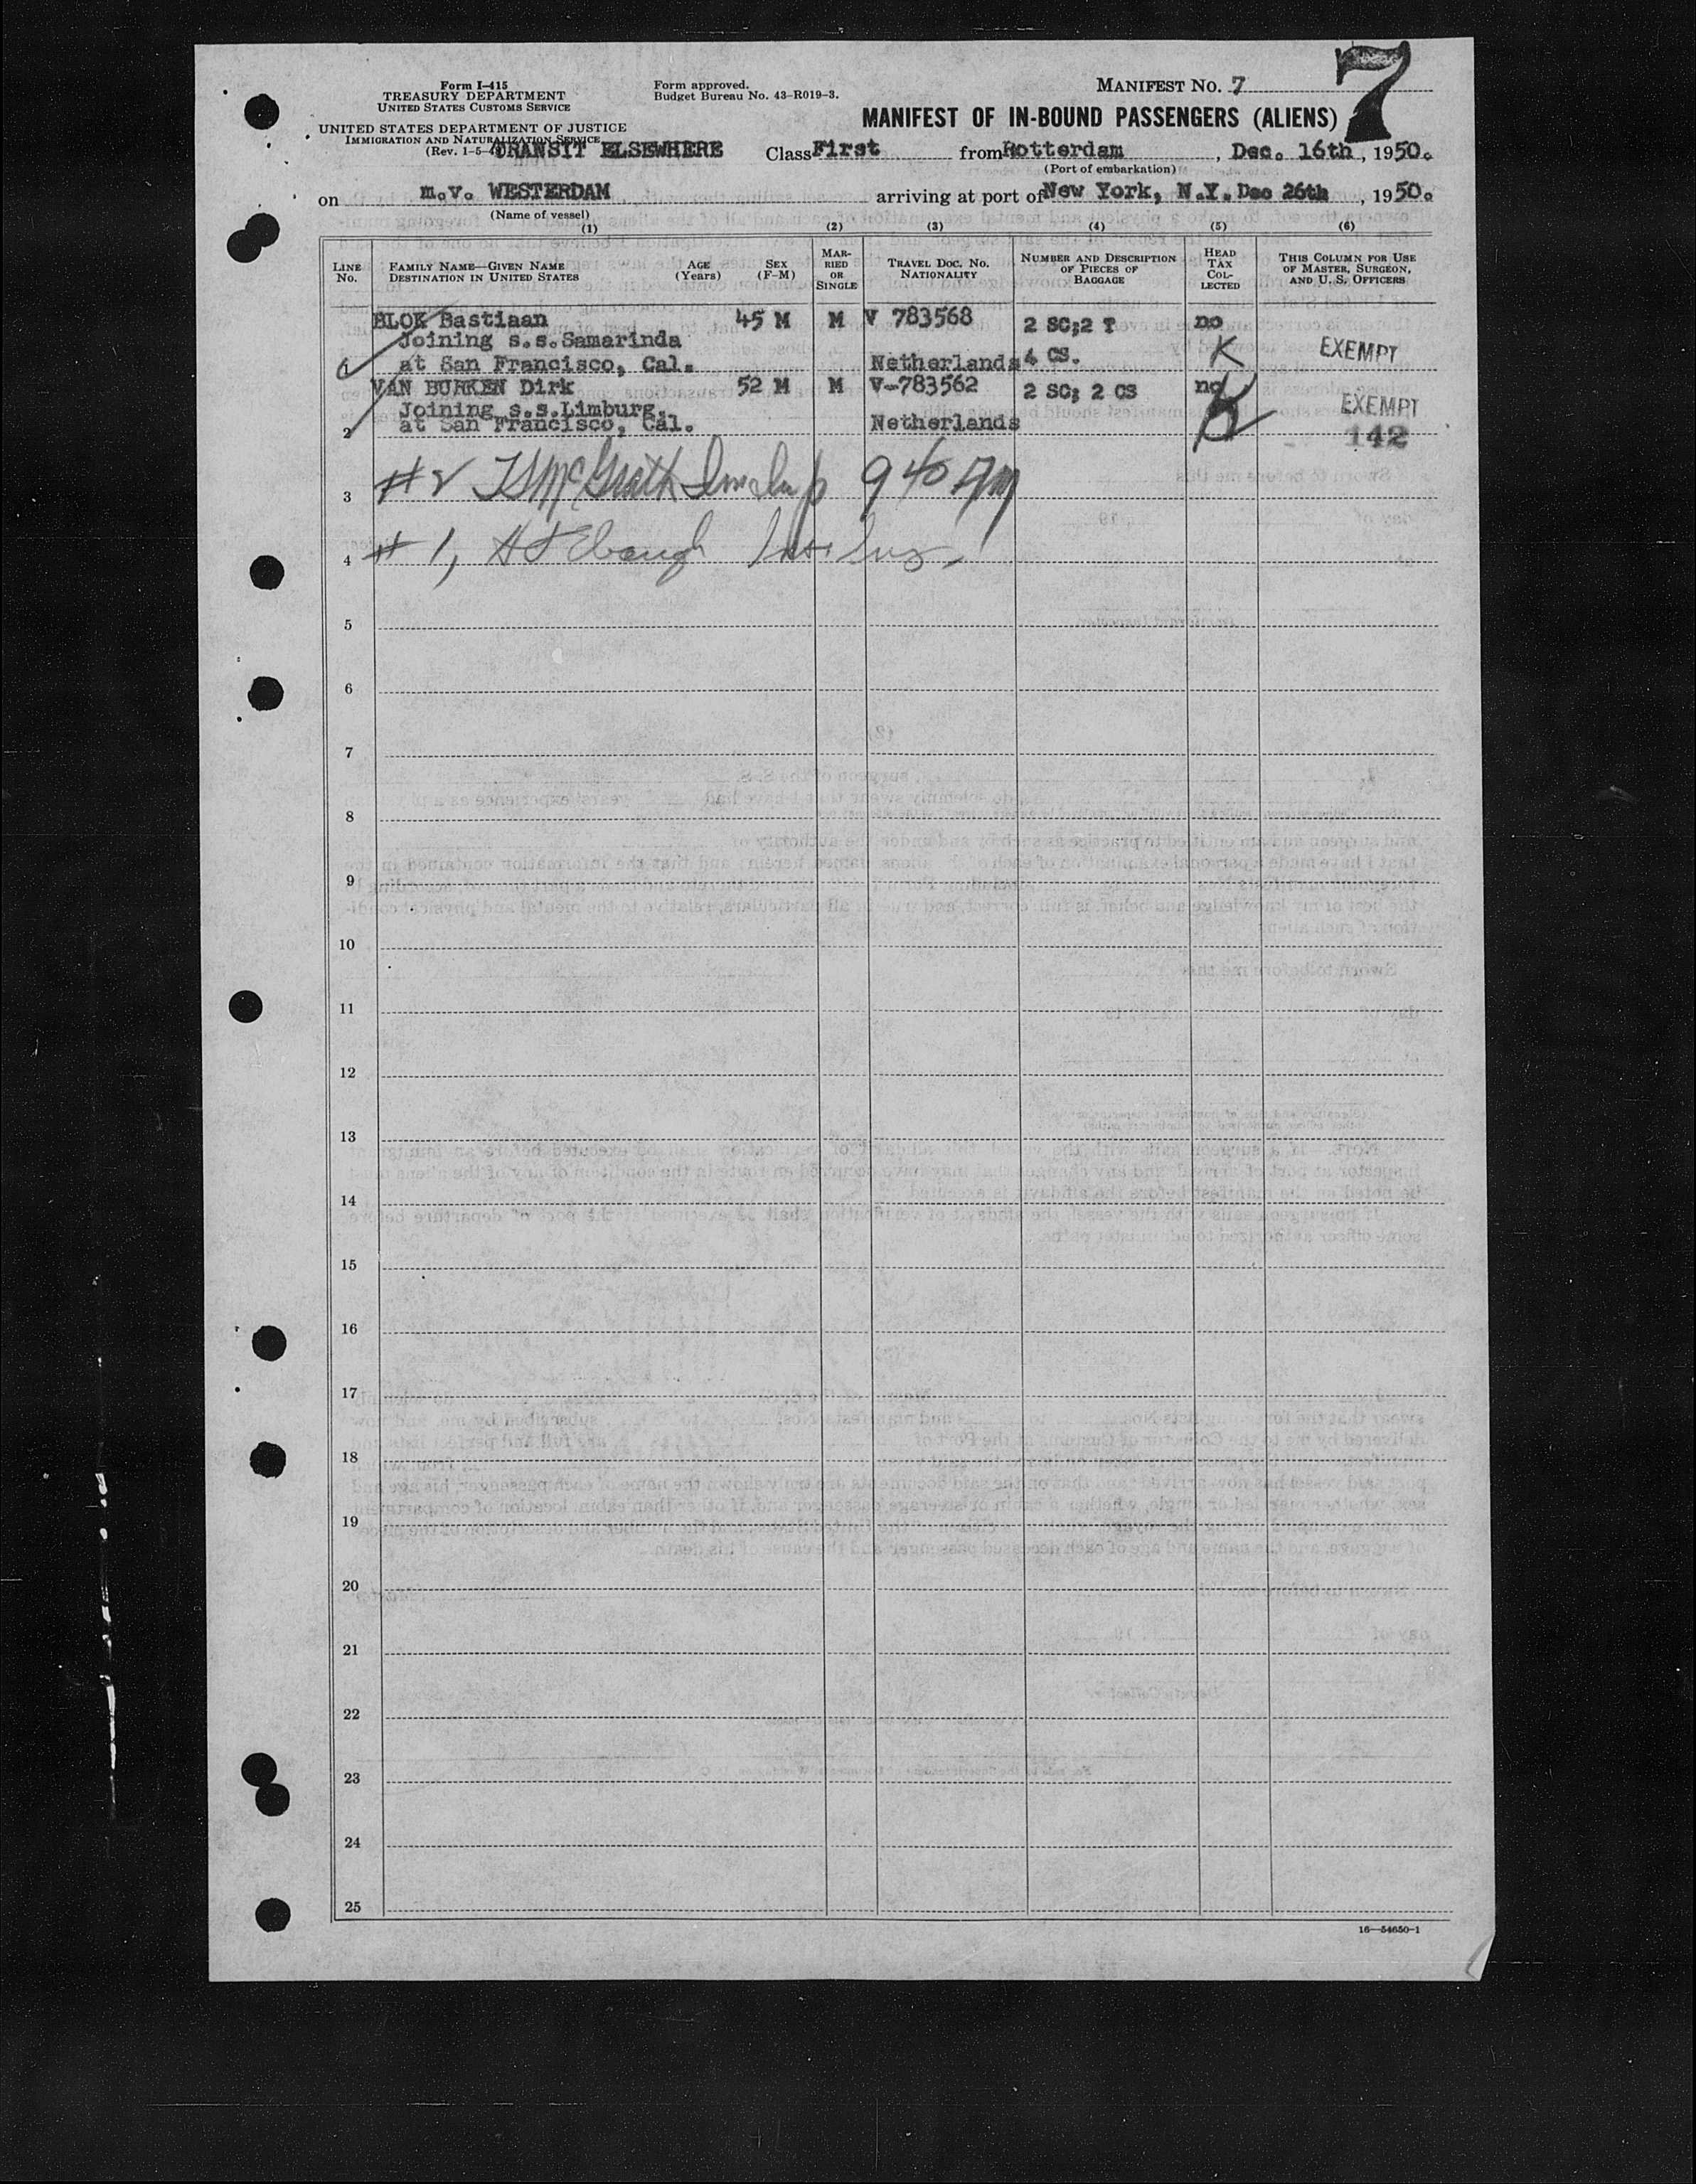 Form I-415
TREASURY DEPARTMENT
UNITED STATES CUSTOMS SERVICE
Form approved.
Budget Bureau No. 43-R019-3.
MANIFEST NO. 7
7
MANIFEST OF IN-BOUND PASSENGERS (ALIENS)
UNITED STATES DEPARTMENT OF JUSTICE
IMMIGRATION AND NATURALIZATION SERVICE
(Rev. 1-5-
TRANSIT ELSEWHERE Class First from Rotterdam, Dec. 16th, 1950.
(Port of embarkation)
on m.v. WESTERDAM arriving at port of New York, N.Y. Dec 26th, 1950.
(Name of vessel)
(1) (2) (3) (4) (5) (6)
LINE No. FAMILY NAME—GIVEN NAME DESTINATION IN UNITED STATES AGE (Years) SEX (F-M) MARRIED OR SINGLE TRAVEL DOC. NO. NATIONALITY NUMBER AND DESCRIPTION OF PIECES OF BAGGAGE HEAD TAX COLLECTED THIS COLUMN FOR USE OF MASTER, SURGEON, AND U. S. OFFICERS
BLOK Bastiaan 45 M M V 783568 2 SC;2 T no
Joining s.s.Samarinda
1 at San Francisco, Cal. Netherlands 4 CS. K EXEMPT
VAN BURKEN Dirk 52 M M V-783562 2 SC; 2 CS no
Joining s.s.Limburg. EXEMPT
2 at San Francisco, Cal. Netherlands K 142
3 #2 McGrath 9 40 AM
4 #1, Ebaugh
5
6
7
8
9
10
11
12
13
14
15
16
17
18
19
20
21
22
23
24
25
16—54650-1